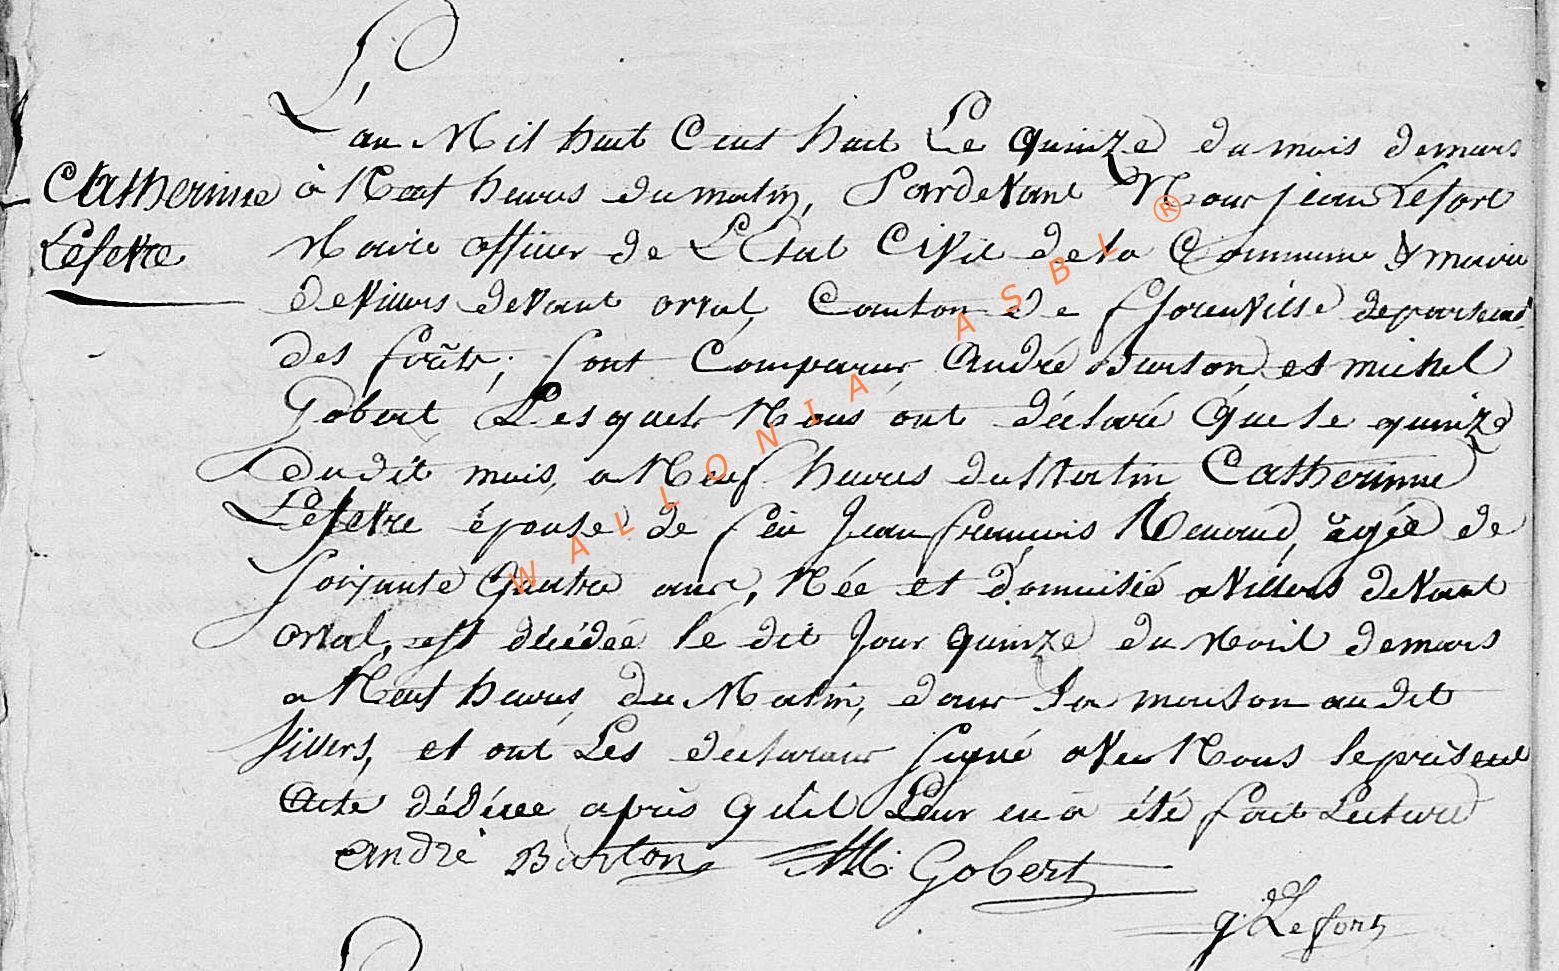 L'an Mil huit Cent huit Le quinze du mois demars
Catherinne
Lefevre
à Neuf heures du matin, Pardevant Nous jean Lefort
Maire officier de L'Etat Civil dela Commune & mairie
deVillers deVant orval, Canton de fflorenVille departement
des forêts; sont Comparus André Burton et michel
Gobert Lesquels Nous ont déclaré Que le quinze
Dudit mois, a Neuf heures du Matin Catherinne
Lefevre épouse de feu Jean françois Renaud, agée de
soixante Quatre ans, Née et domicilié a Villers deVant
orval, est décédée le dit Jour quinze du Mois demars
a Neuf heures du Matin, dans sa maison audit
Villers, et ont Les déclarans signé aVec Nous le présent
Acte dédécee après quil Leur en a été fait Lecture
andré Burton M. Gobert
j. Lefort
WALLONIA ASBL ®